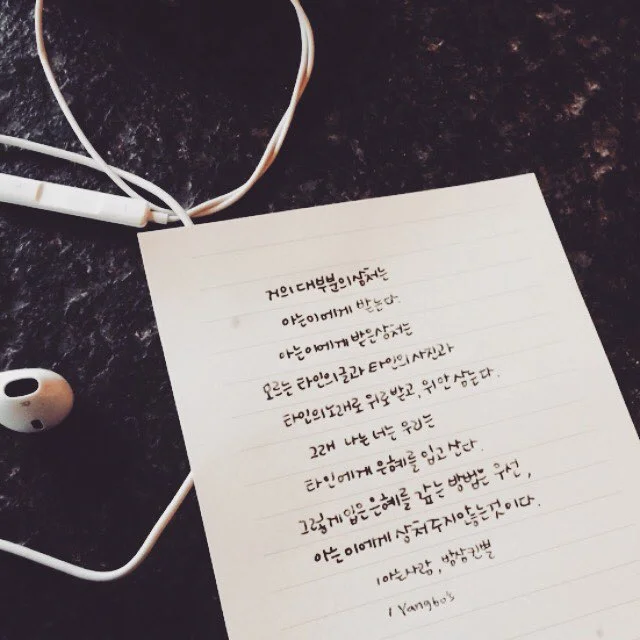 거의 대부분의 상처는
아는이에게 받는다.
아는이에게 받은 상처는
모르는 타인의 글과 타인의 사진과
타인의 노래로 위로받고, 위안 삼는다.
그래 나는 너는 우리는
타인에게 은혜를 입고 산다.
그렇게 입은 은혜를 갚는 방법은 우선,
아는이에게 상처주지 않는 것이다.
/ 아는사람,
/ Yangbo's